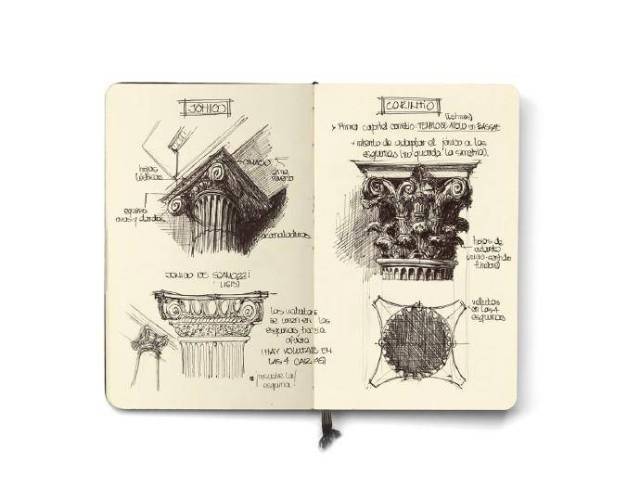 JÓNICO
ÁBACO
hojas
equino
ovas y dardos
acanaladuras
JÓNICO DE SCAMOZZI
(1615)
las volutas
se unen en las
esquinas hacia
afuera
(HAY VOLUTAS EN
LAS 4 CARAS)
resuelve la
esquina!
CORINTIO
> Primer capitel corintio: TEMPLO DE APOLO en BASSAE
→ intento de adaptar el jónico a las
esquinas (no guarda la simetría).
hojas de
acanto
volutas
en las 4
esquinas